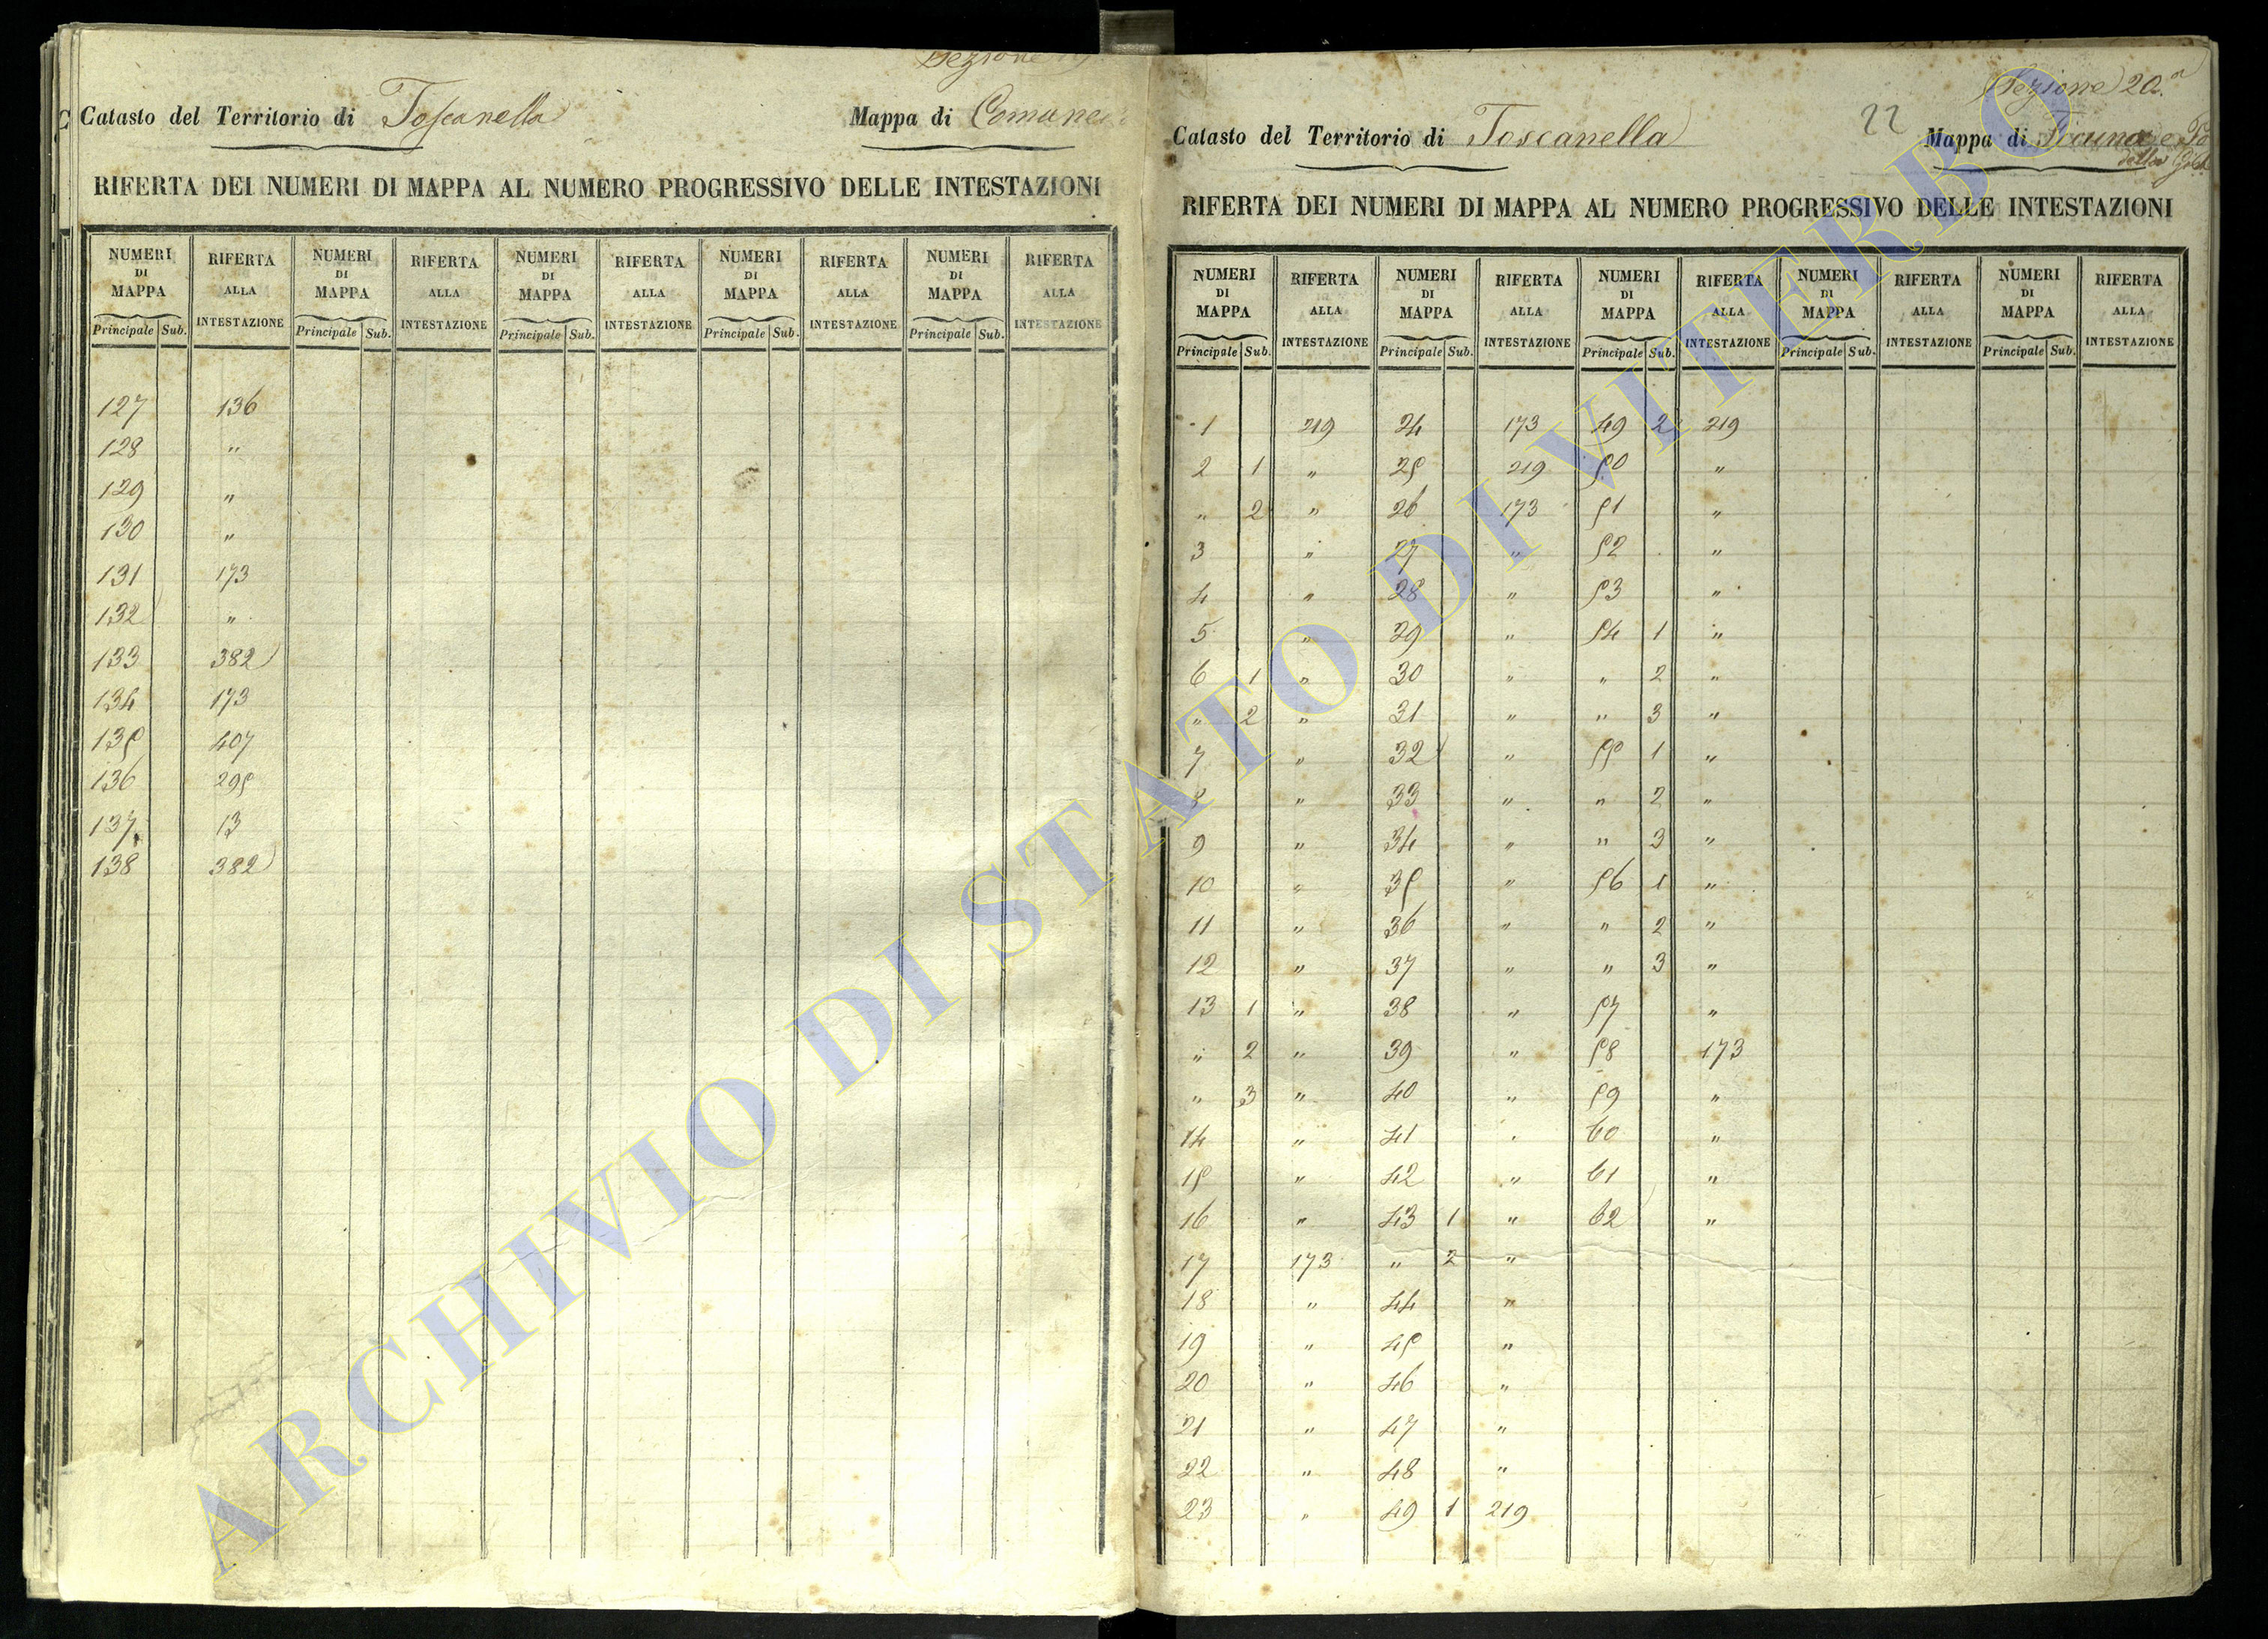 Sezione 19
Catasto del Territorio di Toscanella Mappa di Comune
RIFERTA DEI NUMERI DI MAPPA AL NUMERO PROGRESSIVO DELLE INTESTAZIONI
NUMERI RIFERTA NUMERI RIFERTA NUMERI RIFERTA NUMERI RIFERTA NUMERI RIFERTA
DI ALLA DI ALLA DI ALLA DI ALLA DI ALLA
MAPPA INTESTAZIONE MAPPA INTESTAZIONE MAPPA INTESTAZIONE MAPPA INTESTAZIONE MAPPA INTESTAZIONE
Principale Sub. Principale Sub. Principale Sub. Principale Sub. Principale Sub.
127 136
128 "
129 "
130 "
131 173
132 "
133 382
134 173
135 407
136 295
137 13
138 382
Sezione 20.a
22
Catasto del Territorio di Toscanella Mappa di
della
RIFERTA DEI NUMERI DI MAPPA AL NUMERO PROGRESSIVO DELLE INTESTAZIONI
NUMERI RIFERTA NUMERI RIFERTA NUMERI RIFERTA NUMERI RIFERTA NUMERI RIFERTA
DI ALLA DI ALLA DI ALLA DI ALLA DI ALLA
MAPPA INTESTAZIONE MAPPA INTESTAZIONE MAPPA INTESTAZIONE MAPPA INTESTAZIONE MAPPA INTESTAZIONE
Principale Sub. Principale Sub. Principale Sub. Principale Sub. Principale Sub.
1 219 24 173 49 2 219
2 1 " 25 219 50 "
" 2 " 26 173 51 "
3 " 27 " 52 "
4 " 28 " 53 "
5 " 29 " 54 1 "
6 1 " 30 " " 2 "
" 2 " 31 " " 3 "
7 " 32 " 55 1 "
8 " 33 " " 2 "
9 " 34 " " 3 "
10 " 35 " 56 1 "
11 " 36 " " 2 "
12 " 37 " " 3 "
13 1 " 38 " 57 "
" 2 " 39 " 58 173
" 3 " 40 " 59 "
14 " 41 " 60 "
15 " 42 " 61 "
16 " 43 1 " 62 "
17 173 " 2 "
18 " 44 "
19 " 45 "
20 " 46 "
21 " 47 "
22 " 48 "
23 " 49 1 219
ARCHIVIO DI STATO DI VITERBO